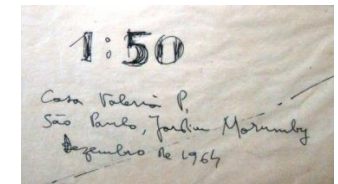 1:50
Casa Valeria P.
São Paulo, Jardim Morumby
Dezembro de 1964